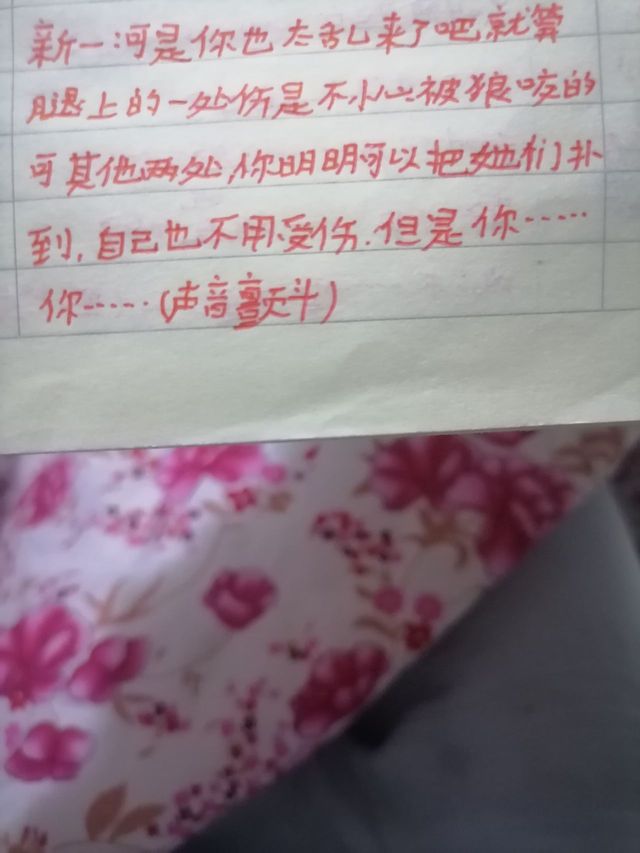 新一:可是你也太乱来了吧就算
腿上的一处伤是不小心被狼咬的
可其他两处,你明明可以把她们扑
到,自己也不用受伤.但是你……
你……(声音颤斗)